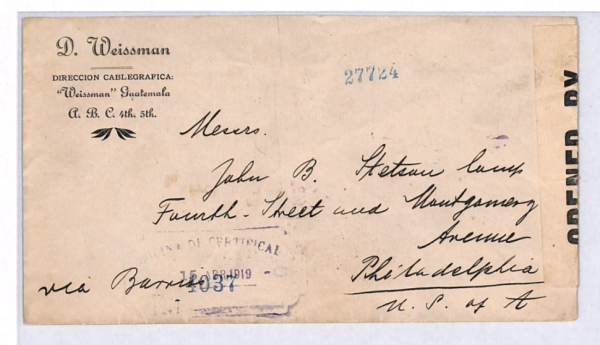 D. Weissman
DIRECCION CABLEGRAFICA:
"Weissman" Guatemala
A. B. C. 4th. 5th.
27724
OPENED BY
Messrs.
John B. Stetson Comp
Fourth-Street and Montgomery
Avenue
Philadelphia
U. S. of A
via Barrios
OFICINA DE CERTIFICAC
15 ABR 1919
4037